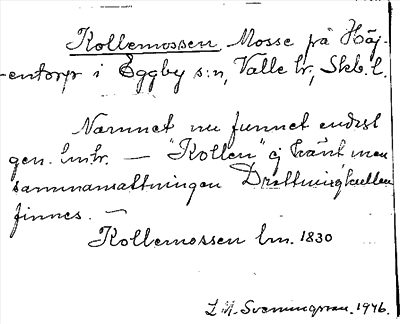 Kollemossen Mosse på Höj-
-entorp i Eggby s:n, Valle hr, Skb. l.
Namnet nu funnet endast
gen. lmtr. — "Kollen" ej känt men
sammansättningen Drottningkullen
finnes. —
Kollemossen lm. 1830
L. M. Svenungsson. 1946.